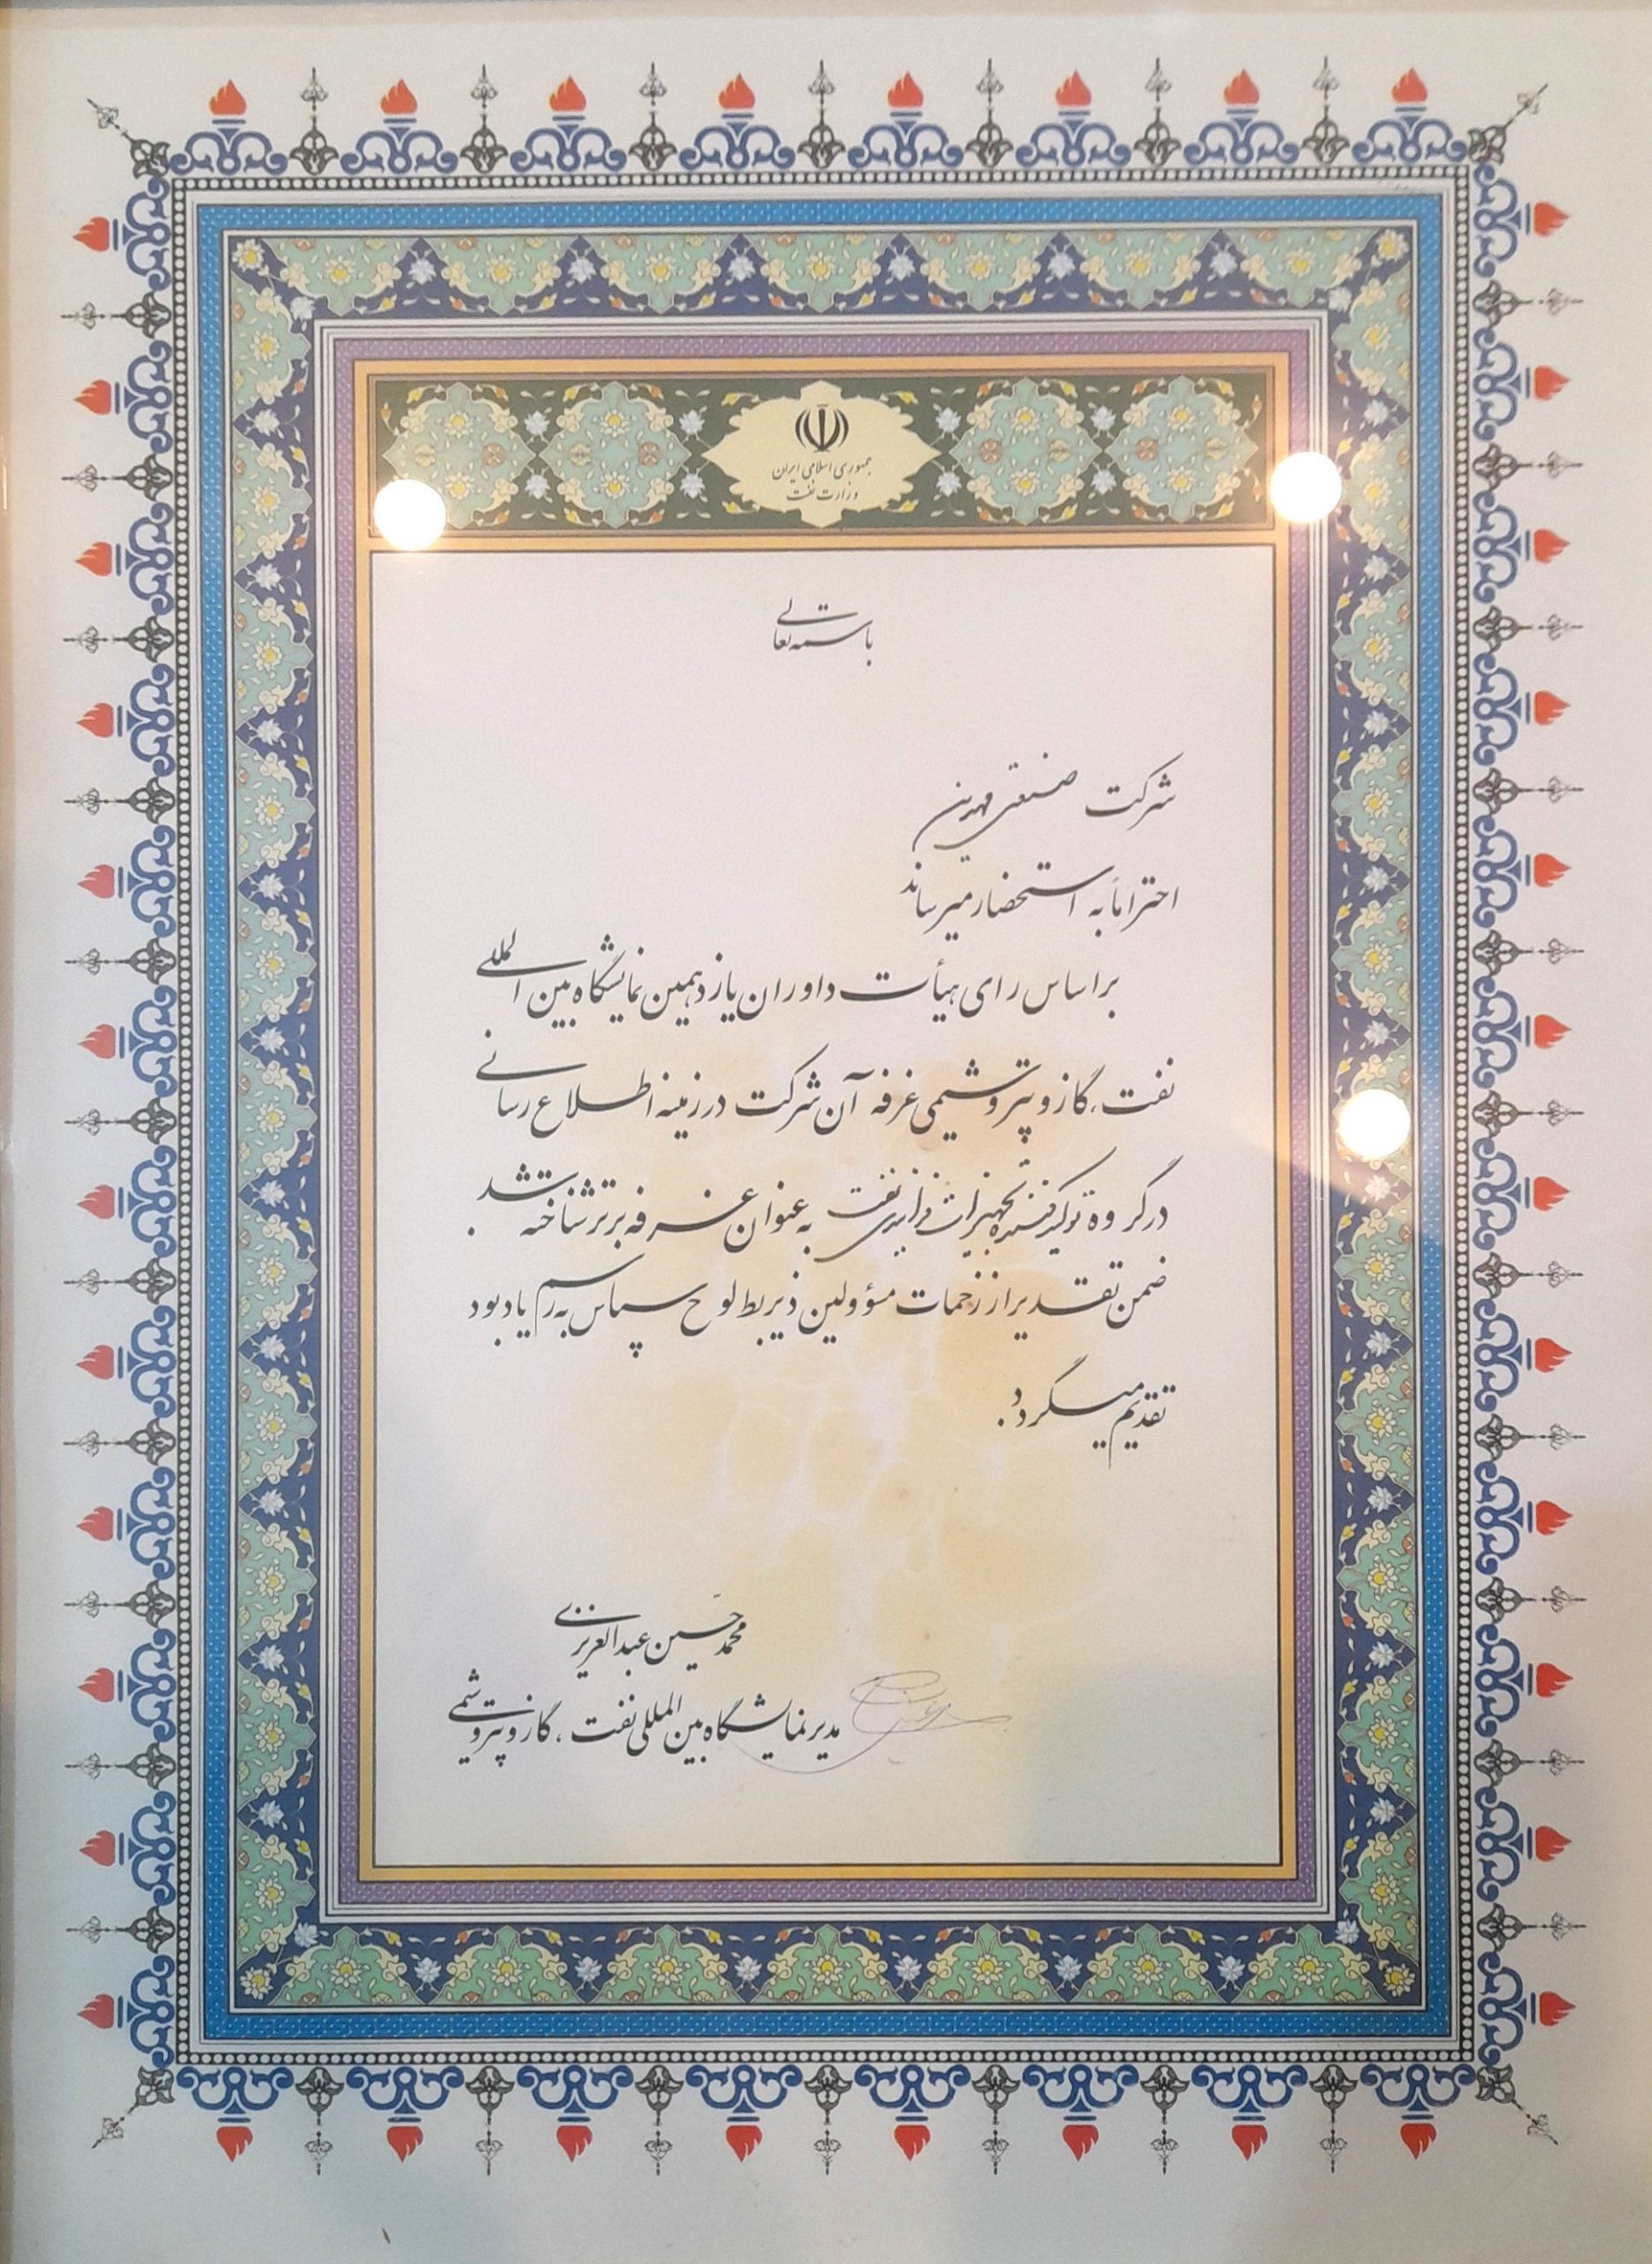 جمهوری اسلامی ایران
وزارت نفت
باسمه تعالی
شرکت صنعتی مهدین
احتراماً به استحضار میرساند
براساس رای هیأت داوران یازدهمین نمایشگاه بین المللی
نفت، گاز و پتروشیمی غرفه آن شرکت در زمینه اطلاع رسانی
در گروه تولید کننده تجهیزات فرایندی نفت به عنوان غرفه برتر شناخته شد.
ضمن تقدیر از زحمات مسؤولین ذیربط لوح سپاس به رسم یادبود
تقدیم میگردد.
محمد حسین عبدالعزیزی
مدیر نمایشگاه بین المللی نفت، گاز و پتروشیمی